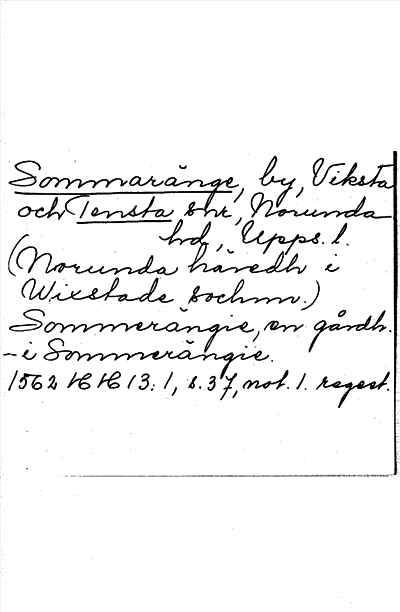 Sommaränge, by, Viksta
och Tensta snr, Norunda
hd, Upps. l.
(Norunda häredh i
Wixstade sochnn.)
Sommerängie, en gårdh.
- i Sommerängie.
1562 HH 13: 1, s. 37, not. 1. regest.